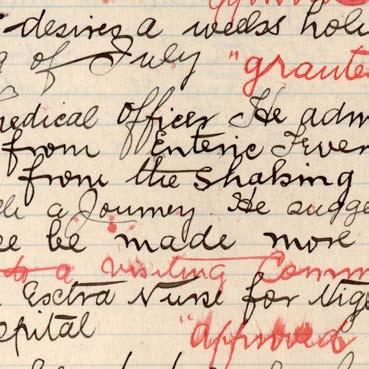 desires a weeks holi
of July "grante
medical Officer He adm
from Enteric Fever
from the shaking
a Journey. He sugge
be made more
to a Visiting Comm
Extra Nurse for Nig
spital "approved